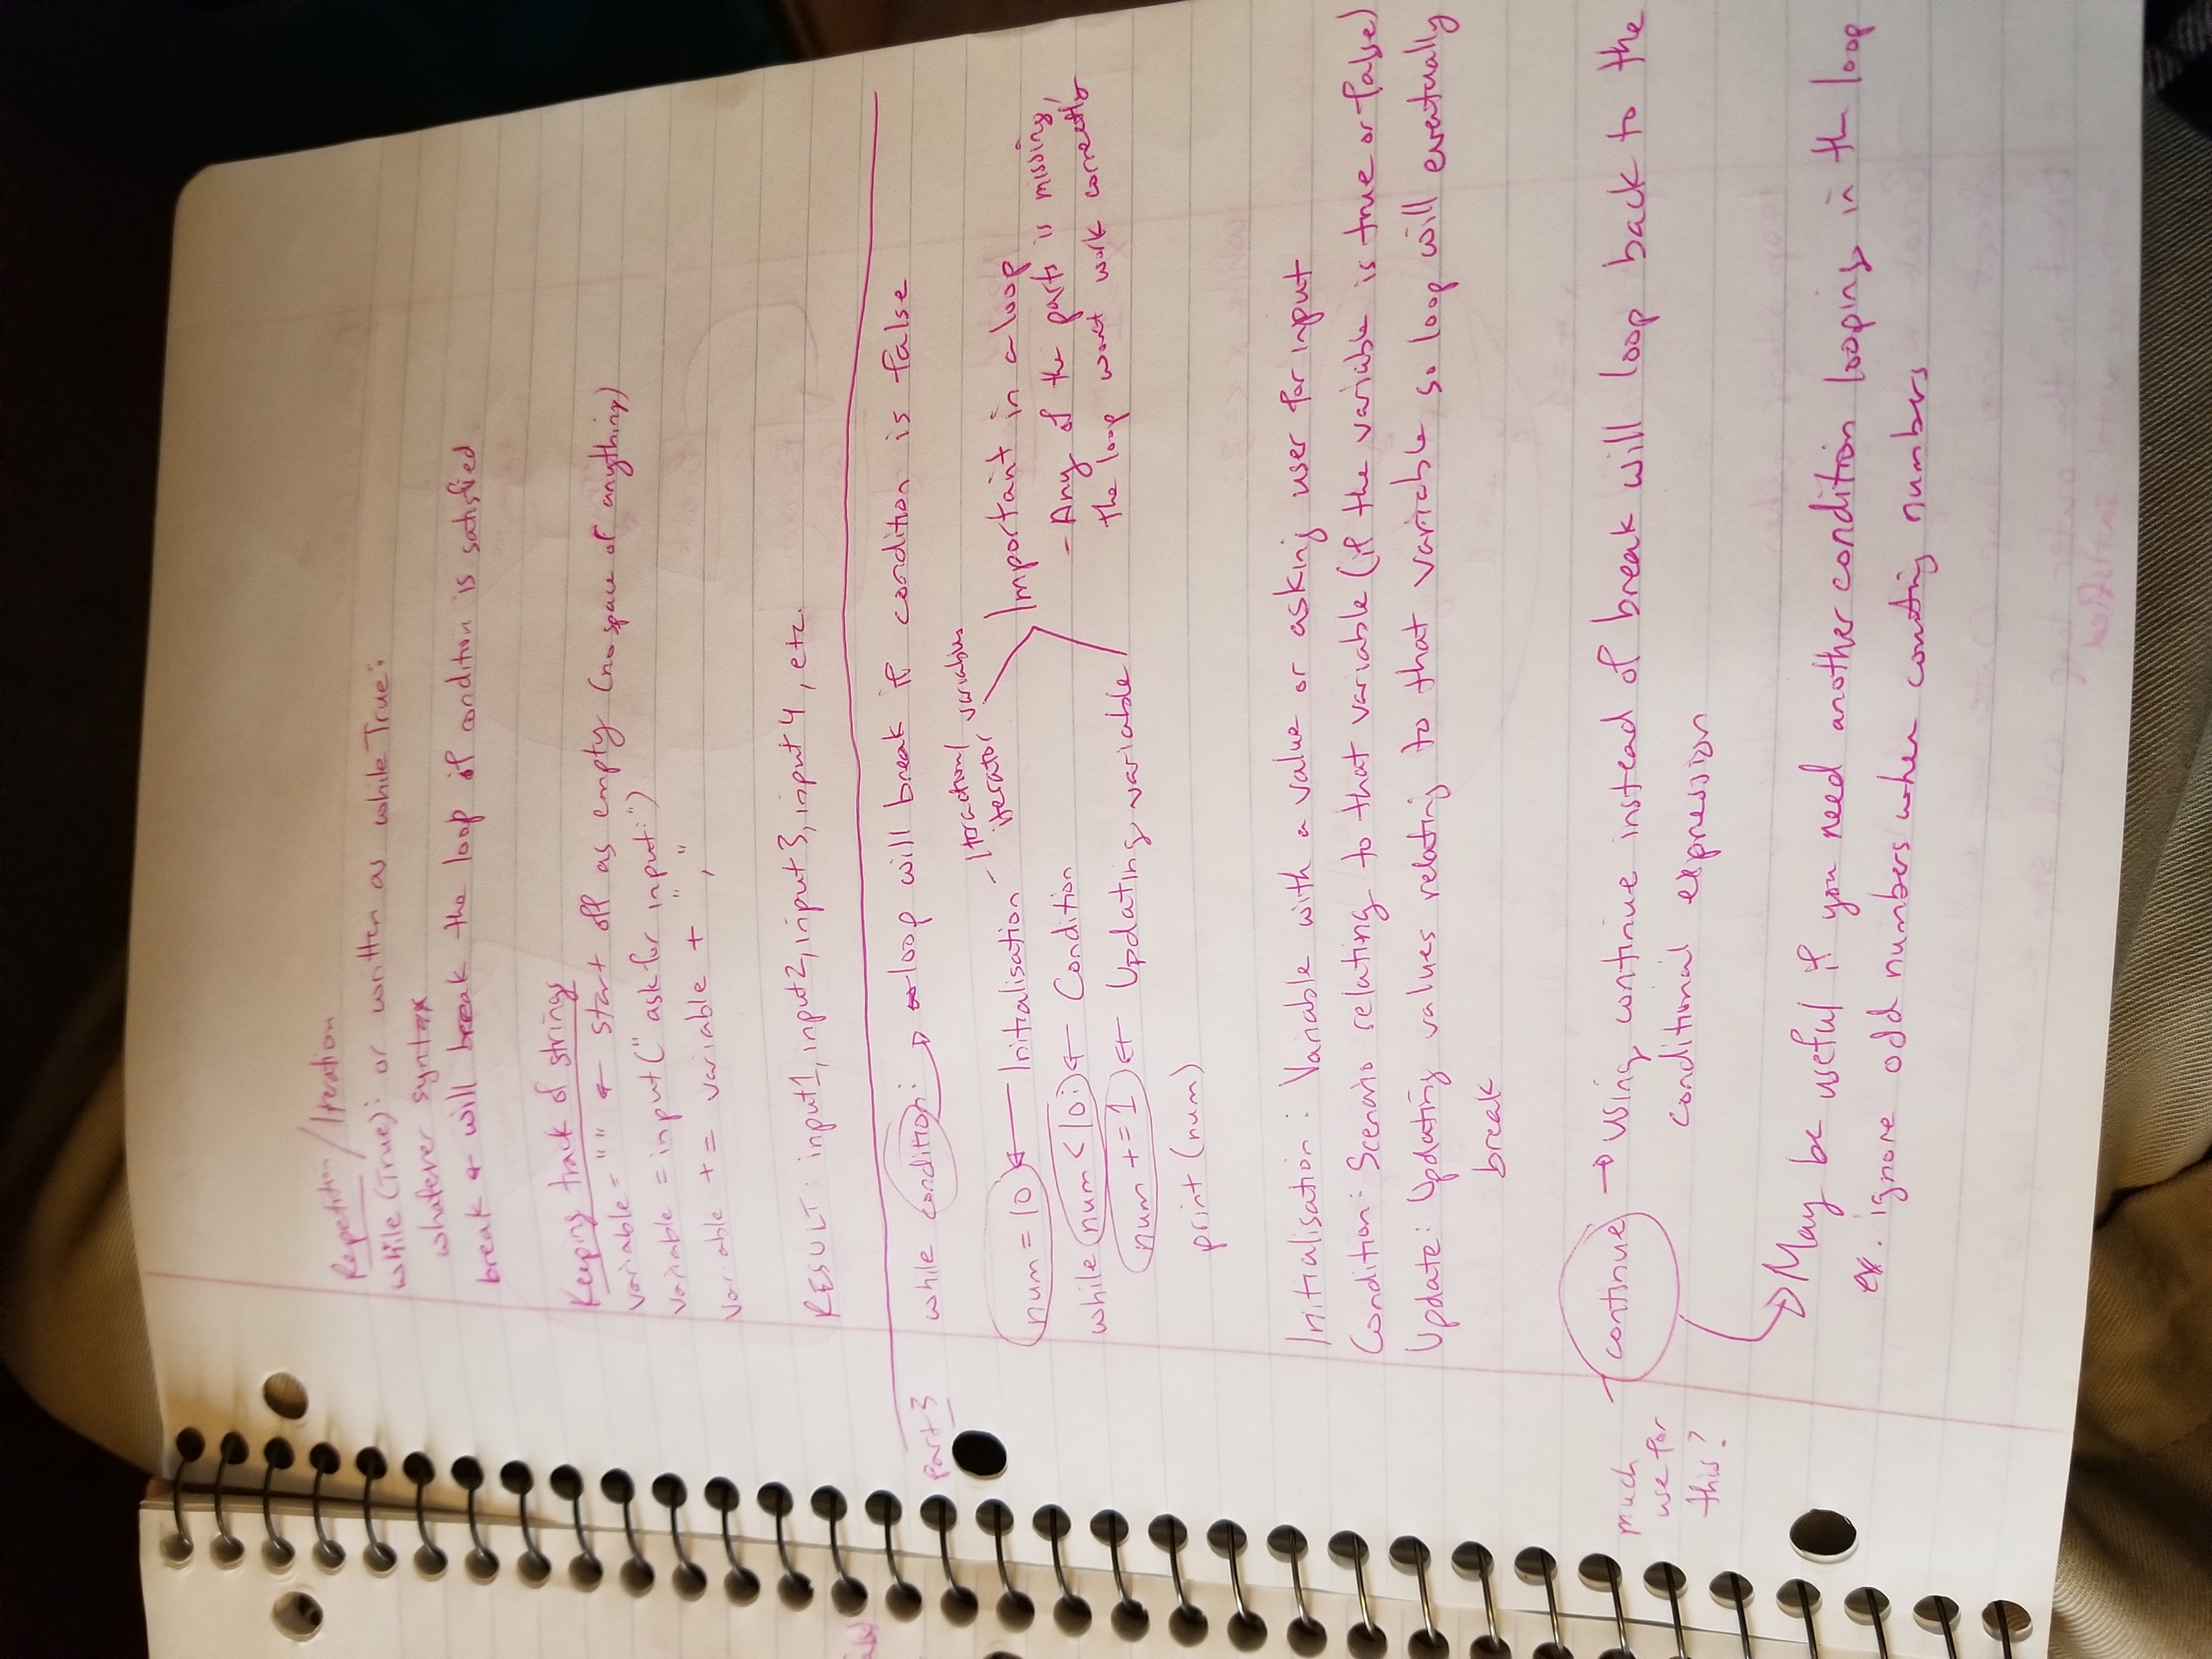 Repetition / Iteration
while (True): or written as while True:
whatever syntax
break ← will break the loop if condition is satisfied.
Keeping track of strings
variable = "" ← start off as empty (no space of anything)
variable = input("ask for input:")
variable += variable + ","
RESULT: input1, input2, input3, input4, etc.
Part 3
while condition: → loop will break if condition is false
num = 10 ← Initialisation - Iteraction/iterator variables
while num < 10: ← Condition
num += 1 ← Updating variable
print (num)
Important in a loop
- Any of the parts is missing,
the loop won't work correctly
Initialisation: Variable with a value or asking user for input
Condition: Scenario relating to that variable (if the variable is true or false)
Update: Updating values relating to that variable so loop will eventually
break
much
use for
this?
continue → using continue instead of break will loop back to the
conditional expression
→ May be useful if you need another condition looping in th loop
ex. ignore odd numbers when counting numbers